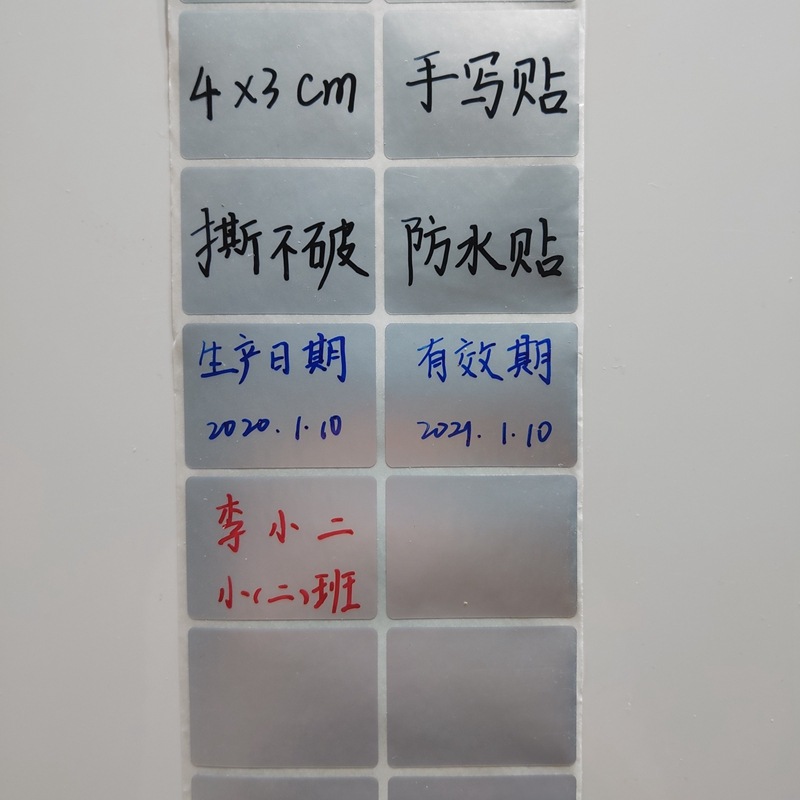 4×3cm
手写贴
撕不破
防水贴
生产日期
2020.1.10
有效期
2021.1.10
李小二
小(二)班